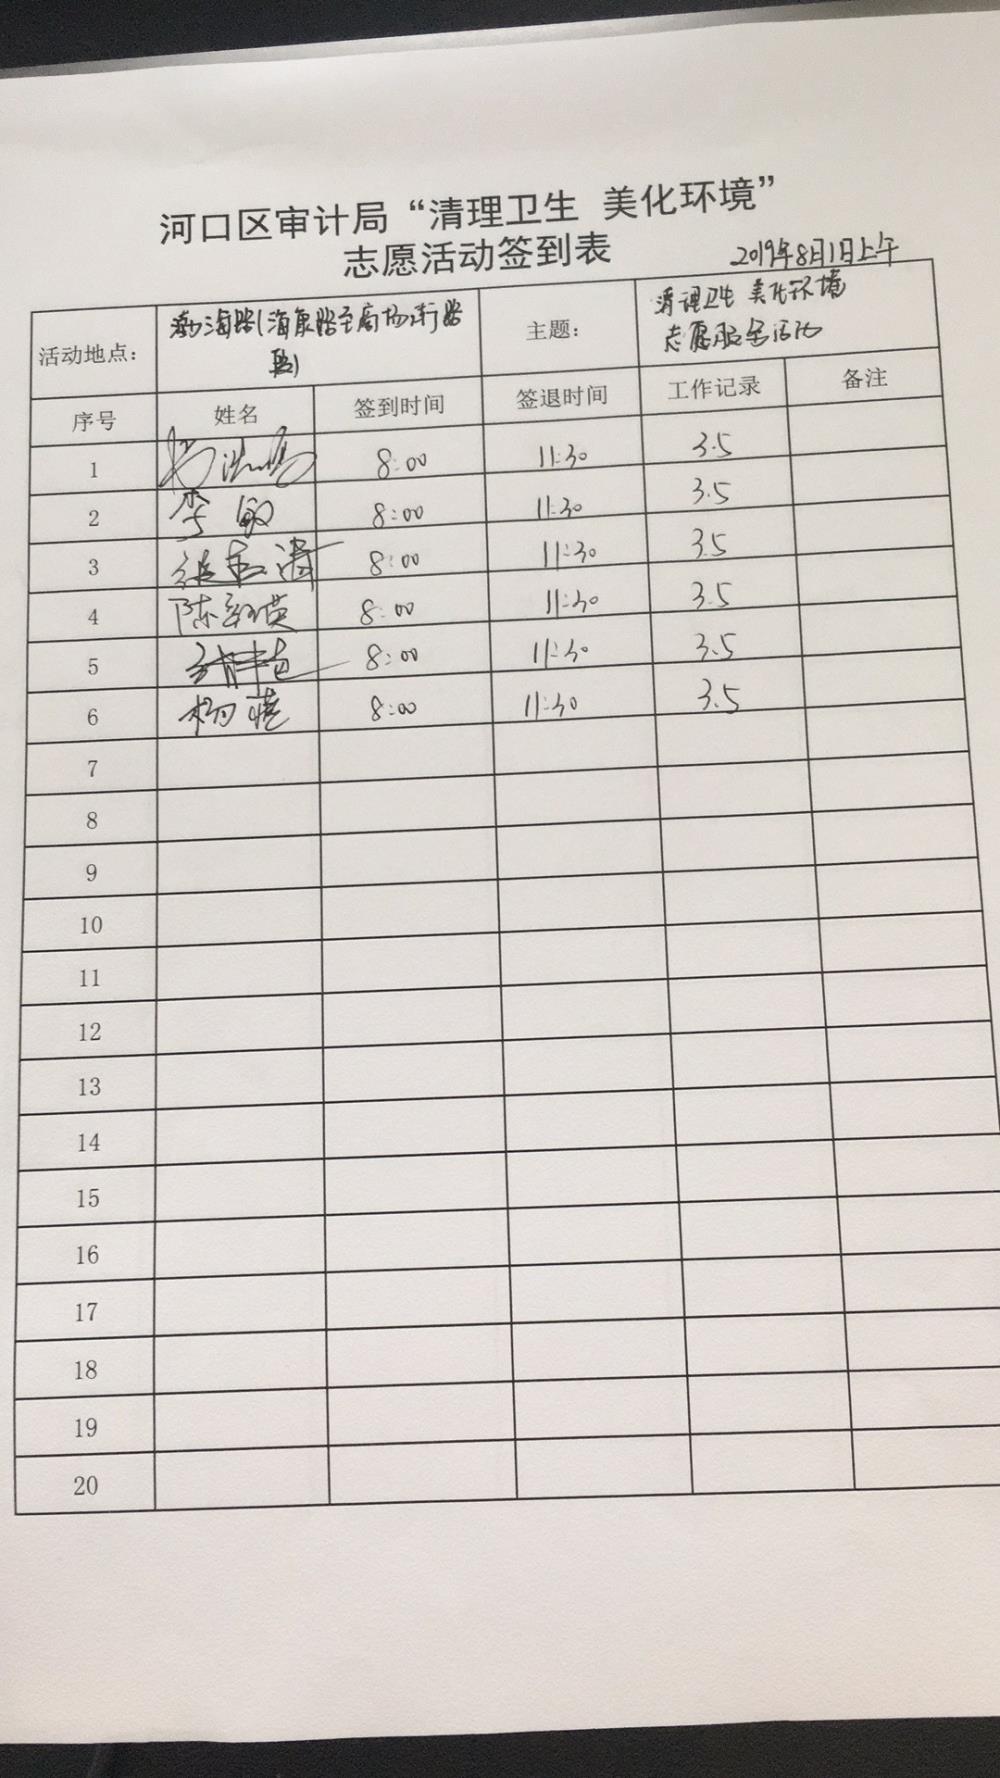 河口区审计局“清理卫生 美化环境”
志愿活动签到表
2019年8月1日上午
活动地点： 渤海路(海康路至商场街路 主题： 清理卫生 美化环境
段) 志愿服务活动
序号 姓名 签到时间 签退时间 工作记录 备注
1 8:00 11:30 3.5
2 李敏 8:00 11:30 3.5
3 8:00 11:30 3.5
4 陈 英 8:00 11:30 3.5
5 8:00 11:30 3.5
6 杨 8:00 11:30 3.5
7
8
9
10
11
12
13
14
15
16
17
18
19
20